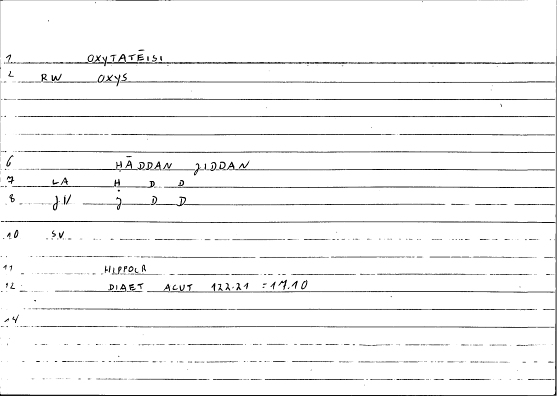 1 OXYTATĒISI
2 RW OXYS
6 ḤĀDDAN JIDDAN
7 LA Ḥ D D
8 JN J D D
10 SV
11 HIPPOCR
12 DIAET ACUT 122.21 = 17.10
14